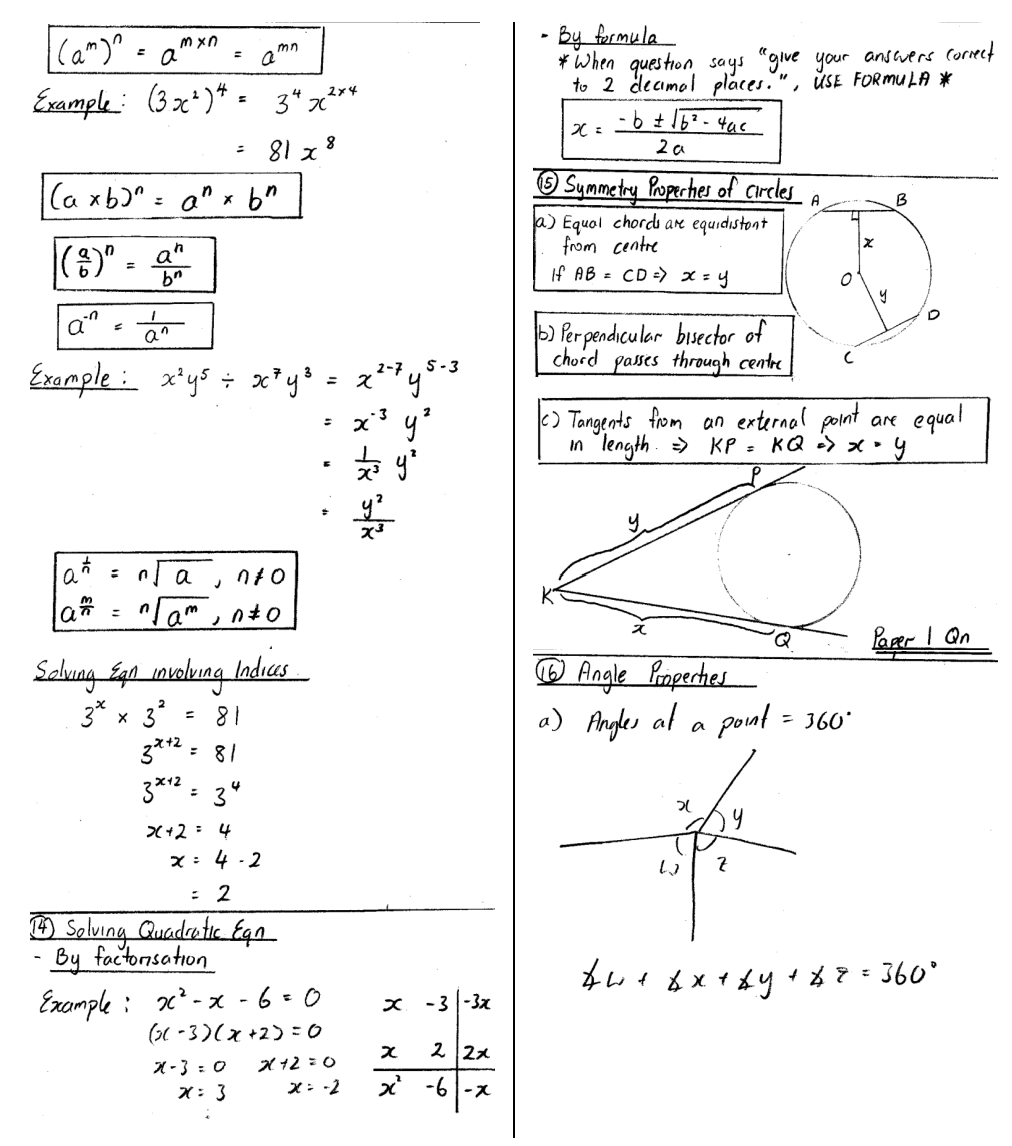 (a^m)^n = a^(m×n) = a^(mn)
Example: (3x²)⁴ = 3⁴ x^(2×4)
= 81 x⁸
(a × b)^n = a^n × b^n
(a/b)^n = a^n/b^n
a^(-n) = 1/a^n
Example: x²y⁵ ÷ x⁷y³ = x^(2-7) y^(5-3)
= x^(-3) y²
= 1/x³ y²
= y²/x³
a^(1/n) = n√a, n≠0
a^(m/n) = n√(a^m), n≠0
Solving Eqn involving Indices
3^x × 3² = 81
3^(x+2) = 81
3^(x+2) = 3⁴
x+2 = 4
x = 4 - 2
= 2
14 Solving Quadratic Eqn
- By factorisation
Example: x² - x - 6 = 0
(x-3)(x+2) = 0
x-3 = 0 x+2 = 0
x = 3 x = -2
x -3 | -3x
x 2 | 2x
x² -6 | -x
- By formula
* When question says "give your answers correct
to 2 decimal places.", USE FORMULA *
x = (-b ± √(b² - 4ac))/2a
15 Symmetry Properties of Circles
a) Equal chords are equidistant
from centre
If AB = CD => x = y
A B
x
O
y
D
C
b) Perpendicular bisector of
chord passes through centre
c) Tangents from an external point are equal
in length. => KP = KQ => x = y
P
y
K
x
Q
Paper 1 Qn
16 Angle Properties
a) Angles at a point = 360°
x
y
w z
∡w + ∡x + ∡y + ∡z = 360°